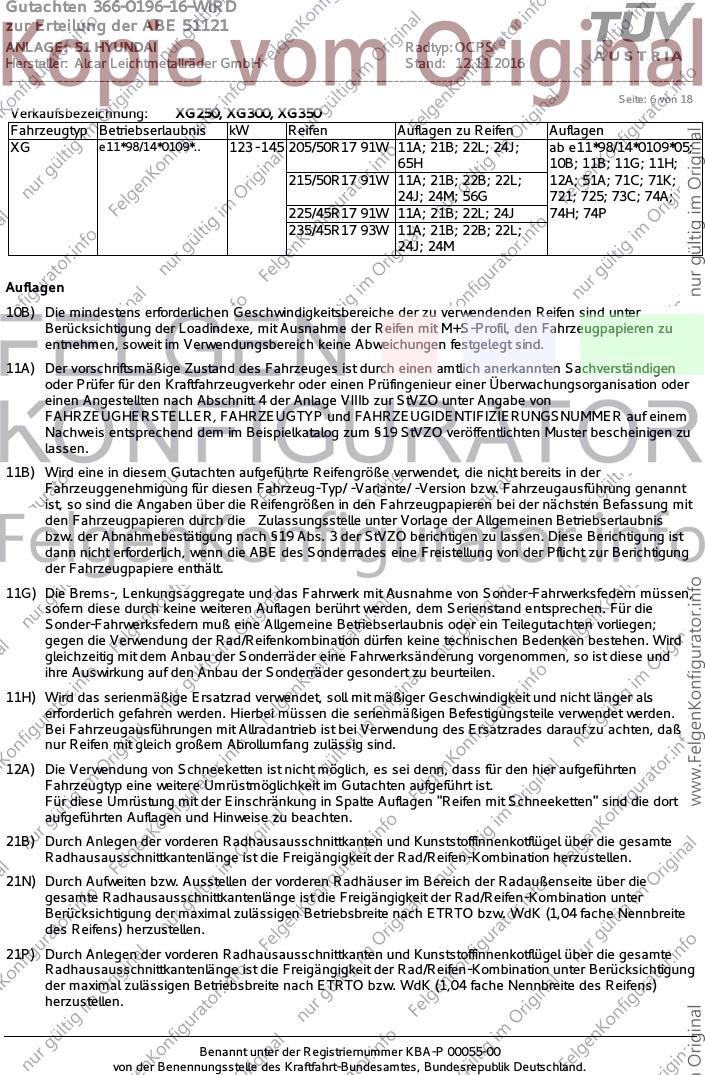 Gutachten 366-0196-16-WIRD
zur Erteilung der ABE 51121
ANLAGE: 51 HYUNDAI
Radtyp: OCPS
Hersteller: Alcar Leichtmetallräder GmbH
Stand: 12.11.2016
TÜV
AUSTRIA
Kopie vom Original
Seite: 6 von 18
Verkaufsbezeichnung: XG250, XG300, XG350
Fahrzeugtyp Betriebserlaubnis kW Reifen Auflagen zu Reifen Auflagen
XG e11*98/14*0109*.. 123 -145 205/50R17 91W 11A; 21B; 22L; 24J; ab e11*98/14*0109*05;
65H 10B; 11B; 11G; 11H;
215/50R17 91W 11A; 21B; 22B; 22L; 12A; 51A; 71C; 71K;
24J; 24M; 56G 721; 725; 73C; 74A;
225/45R17 91W 11A; 21B; 22L; 24J 74H; 74P
235/45R17 93W 11A; 21B; 22B; 22L;
24J; 24M
Auflagen
10B) Die mindestens erforderlichen Geschwindigkeitsbereiche der zu verwendenden Reifen sind unter
Berücksichtigung der Loadindexe, mit Ausnahme der Reifen mit M+S-Profil, den Fahrzeugpapieren zu
entnehmen, soweit im Verwendungsbereich keine Abweichungen festgelegt sind.
11A) Der vorschriftsmäßige Zustand des Fahrzeuges ist durch einen amtlich anerkannten Sachverständigen
oder Prüfer für den Kraftfahrzeugverkehr oder einen Prüfingenieur einer Überwachungsorganisation oder
einen Angestellten nach Abschnitt 4 der Anlage VIIIb zur StVZO unter Angabe von
FAHRZEUGHERSTELLER, FAHRZEUGTYP und FAHRZEUGIDENTIFIZIERUNGSNUMMER auf einem
Nachweis entsprechend dem im Beispielkatalog zum §19 StVZO veröffentlichten Muster bescheinigen zu
lassen.
11B) Wird eine in diesem Gutachten aufgeführte Reifengröße verwendet, die nicht bereits in der
Fahrzeuggenehmigung für diesen Fahrzeug-Typ/ -Variante/ -Version bzw. Fahrzeugausführung genannt
ist, so sind die Angaben über die Reifengrößen in den Fahrzeugpapieren bei der nächsten Befassung mit
den Fahrzeugpapieren durch die Zulassungsstelle unter Vorlage der Allgemeinen Betriebserlaubnis
bzw. der Abnahmebestätigung nach §19 Abs. 3 der StVZO berichtigen zu lassen. Diese Berichtigung ist
dann nicht erforderlich, wenn die ABE des Sonderrades eine Freistellung von der Pflicht zur Berichtigung
der Fahrzeugpapiere enthält.
11G) Die Brems-, Lenkungsaggregate und das Fahrwerk mit Ausnahme von Sonder-Fahrwerksfedern müssen,
sofern diese durch keine weiteren Auflagen berührt werden, dem Serienstand entsprechen. Für die
Sonder-Fahrwerksfedern muß eine Allgemeine Betriebserlaubnis oder ein Teilegutachten vorliegen;
gegen die Verwendung der Rad/Reifenkombination dürfen keine technischen Bedenken bestehen. Wird
gleichzeitig mit dem Anbau der Sonderräder eine Fahrwerksänderung vorgenommen, so ist diese und
ihre Auswirkung auf den Anbau der Sonderräder gesondert zu beurteilen.
11H) Wird das serienmäßige Ersatzrad verwendet, soll mit mäßiger Geschwindigkeit und nicht länger als
erforderlich gefahren werden. Hierbei müssen die serienmäßigen Befestigungsteile verwendet werden.
Bei Fahrzeugausführungen mit Allradantrieb ist bei Verwendung des Ersatzrades darauf zu achten, daß
nur Reifen mit gleich großem Abrollumfang zulässig sind.
12A) Die Verwendung von Schneeketten ist nicht möglich, es sei denn, dass für den hier aufgeführten
Fahrzeugtyp eine weitere Umrüstmöglichkeit im Gutachten aufgeführt ist.
Für diese Umrüstung mit der Einschränkung in Spalte Auflagen "Reifen mit Schneeketten" sind die dort
aufgeführten Auflagen und Hinweise zu beachten.
21B) Durch Anlegen der vorderen Radhausausschnittkanten und Kunststoffinnenkotflügel über die gesamte
Radhausausschnittkantenlänge ist die Freigängigkeit der Rad/Reifen-Kombination herzustellen.
21N) Durch Aufweiten bzw. Ausstellen der vorderen Radhäuser im Bereich der Radaußenseite über die
gesamte Radhausausschnittkantenlänge ist die Freigängigkeit der Rad/Reifen-Kombination unter
Berücksichtigung der maximal zulässigen Betriebsbreite nach ETRTO bzw. WdK (1,04 fache Nennbreite
des Reifens) herzustellen.
21P) Durch Anlegen der vorderen Radhausausschnittkanten und Kunststoffinnenkotflügel über die gesamte
Radhausausschnittkantenlänge ist die Freigängigkeit der Rad/Reifen-Kombination unter Berücksichtigung
der maximal zulässigen Betriebsbreite nach ETRTO bzw. WdK (1,04 fache Nennbreite des Reifens)
herzustellen.
Benannt unter der Registriernummer KBA-P 00055-00
von der Benennungsstelle des Kraftfahrt-Bundesamtes, Bundesrepublik Deutschland.
FELGEN
KONFIGURATOR
FelgenKonfigurator.info
nur gültig im Original
www.FelgenKonfigurator.info